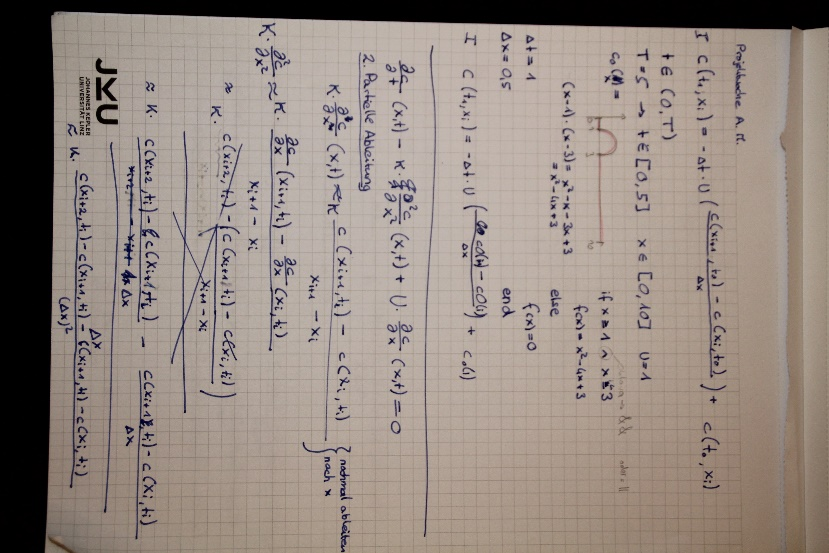 Projektwoche A. M.
I c(t₁,xᵢ) = -Δt·U ( (c(xᵢ₊₁,t₀) - c(xᵢ,t₀)) / Δx ) + c(t₀,xᵢ)
t ∈ (0,T)
T=5 → t ∈ [0,5] x ∈ [0,10] U=1
if x ≥ 1 ∧ x ≤ 3
f(x) = x²-4x+3
(x-1)·(x-3) = x²-x-3x+3
= x²-4x+3
else
f(x)=0
end
Δt = 1
Δx = 0,5
I c(t₁,xᵢ) = -Δt·U ( / Δx ) + c₀(i)
∂c/∂t (x,t) - K·∂²c/∂x² (x,t) + U·∂c/∂x (x,t) = 0
2. Partielle Ableitung
K·∂²c/∂x² (x,t) ≈ K (c(xᵢ₊₁,tᵢ) - c(xᵢ,tᵢ)) / (xᵢ₊₁ - xᵢ) } nochmal ableiten nach x
K·∂²c/∂x² ≈ K· (∂c/∂x (xᵢ₊₁,tᵢ) - ∂c/∂x (xᵢ,tᵢ)) / (xᵢ₊₁ - xᵢ)
≈ K· c(xᵢ₊₂,tᵢ) - (c(xᵢ₊₁,tᵢ) - c(xᵢ,tᵢ))
xᵢ₊₁ - xᵢ
≈ K· (c(xᵢ₊₂,tᵢ) - c(xᵢ₊₁,tᵢ)) / Δx - (c(xᵢ₊₁,tᵢ) - c(xᵢ,tᵢ)) / Δx
Δx
≈ K· (c(xᵢ₊₂,tᵢ) - c(xᵢ₊₁,tᵢ) - c(xᵢ₊₁,tᵢ) - c(xᵢ,tᵢ)) / (Δx)²
JKU
JOHANNES KEPLER
UNIVERSITÄT LINZ